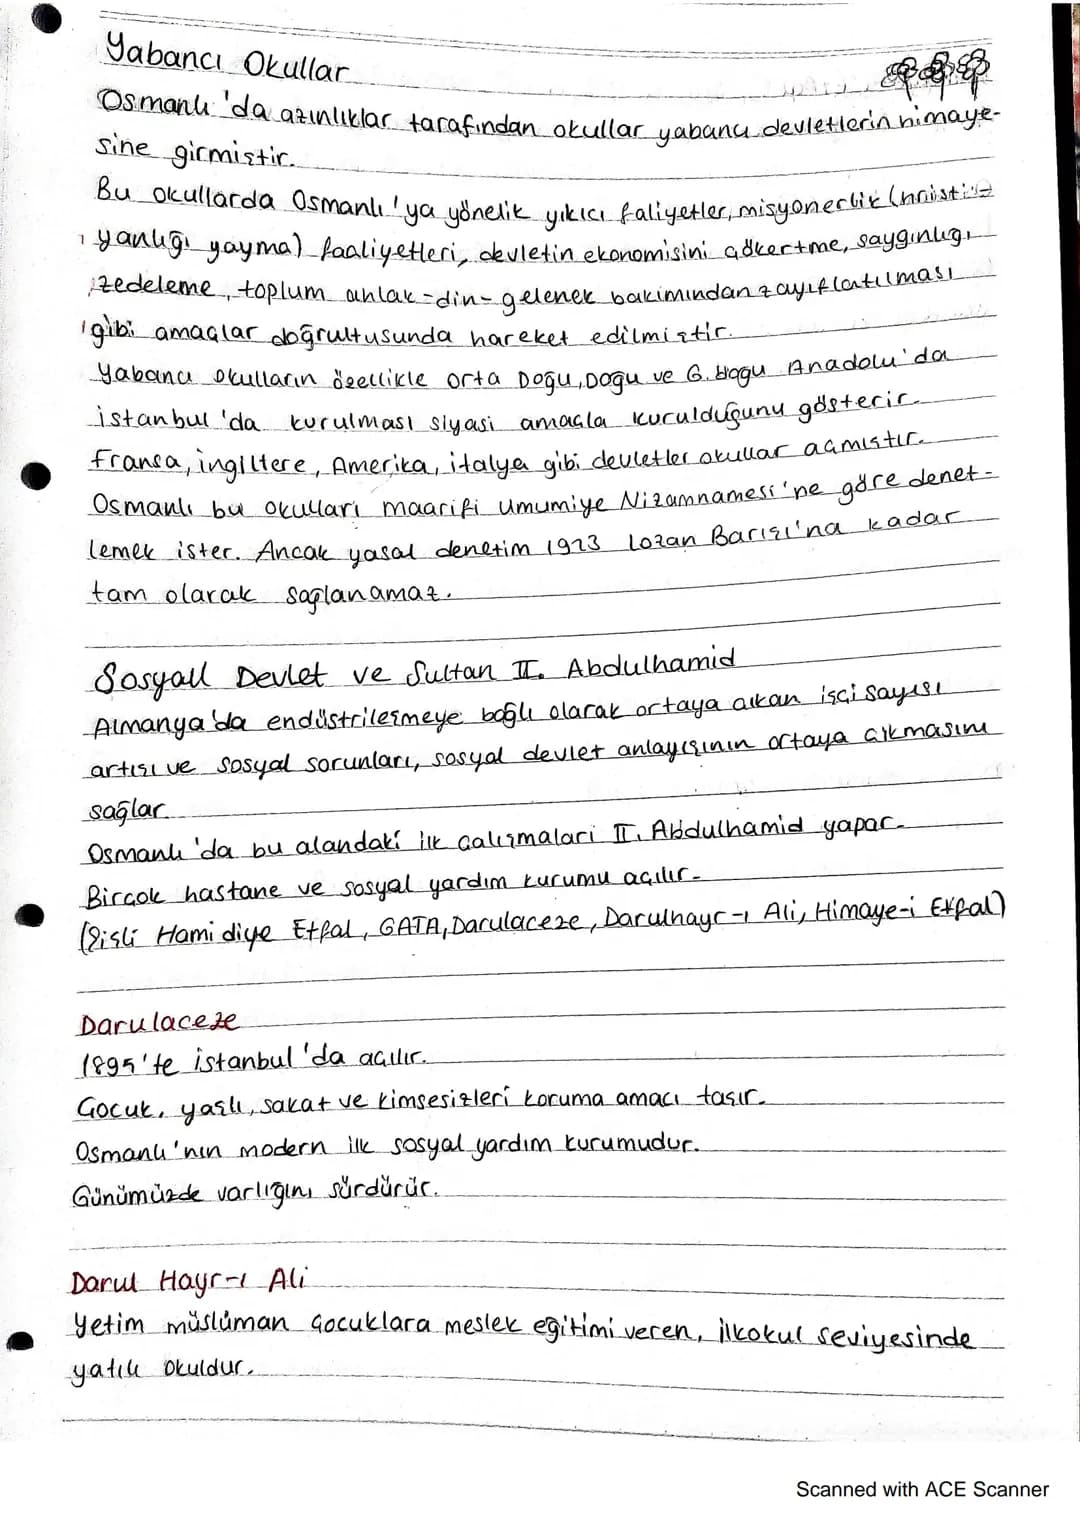 Yabancı Okullar
Osmanlı 'da azınlıklar tarafından okullar yabancı devletlerin himaye-
sine girmiştir.
Bu okullarda Osmanlı 'ya yönelik yıkıcı faliyetler, misyonerlik (hristi-
yanlığı yayma) faaliyetleri, devletin ekonomisini çökertme, saygınlığı
zedeleme, toplum ahlak-din-gelenek bakimından zayıflatılması
gibi amaçlar doğrultusunda hareket edilmiştir.
Yabancı okulların özellikle orta Doğu, Doğu ve G. Doğu Anadolu'da
istanbul 'da kurulması siyasi amaçla kurulduğunu gösterir.
Fransa, ingiltere, Amerika, italya gibi devletler okullar açmıştır.
Osmanlı bu okulları maarifi umumiye Nizamnamesi'ne göre denet-
lemek ister. Ancak yasal denetim 1923 lozan Barışı'na kadar
tam olarak sağlanamaz.
Sosyall Devlet ve Sultan II. Abdulhamid
Almanya'da endüstrileşmeye bağlı olarak ortaya çıkan işçi sayısı
artışı ve sosyal sorunları, sosyal devlet anlayışının ortaya çıkmasını
sağlar.
Osmanlı 'da bu alandaki ilk çalışmalari II. Abdulhamid yapar.
Birçok hastane ve sosyal yardım kurumu açılır.
(Şişli Hamidiye Etfal, GATA, Darulaceze, Darulhayr-ı Ali, Himaye-i Etfal)
Darulaceze
1895'te istanbul 'da açılır.
Çocuk, yaşlı, sakat ve kimsesizleri koruma amacı taşır.
Osmanlı'nın modern ilk sosyal yardım kurumudur.
Günümüzde varlığını sürdürür.
Darul Hayr-ı Ali
Yetim müslüman çocuklara meslek eğitimi veren, ilkokul seviyesinde
yatılı okuldur.
Scanned with ACE Scanner